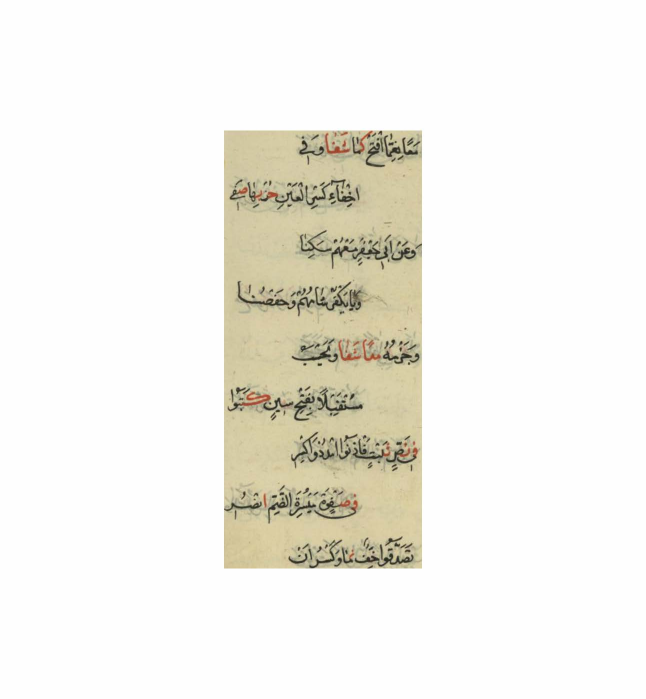 مَعًا نِعِمَّا افْتَحْ كَمَا شَفَا وَفِي
اِخْفَاءِ كَسْرِ الْعَيْنِ حُزْ بِهَا صَفِي
وَعَنْ اَبِي جَعْفَرٍ مَعْهُمْ سَكَّنَا
وَيَا يُكَفِّرْ شَامُهُمْ وَحَفْصُنَا
وَجَزْمُهُ مَدًا شَفَا وَيَحْسِبُ
مُسْتَقْبَلًا بِفَتْحِ سِينٍ كَتَبُوا
فِي نَصِّ ثَبْتٍ فَاْذَنُوا امْدُدْ وَاكْسِرِ
فِي صَفْوَةٍ مَيْسَرَةِ الضَّمِّ انْصُرِ
تَصَدَّقُوا خِفٌّ نَمَا وَكَسْرُ اَنْ